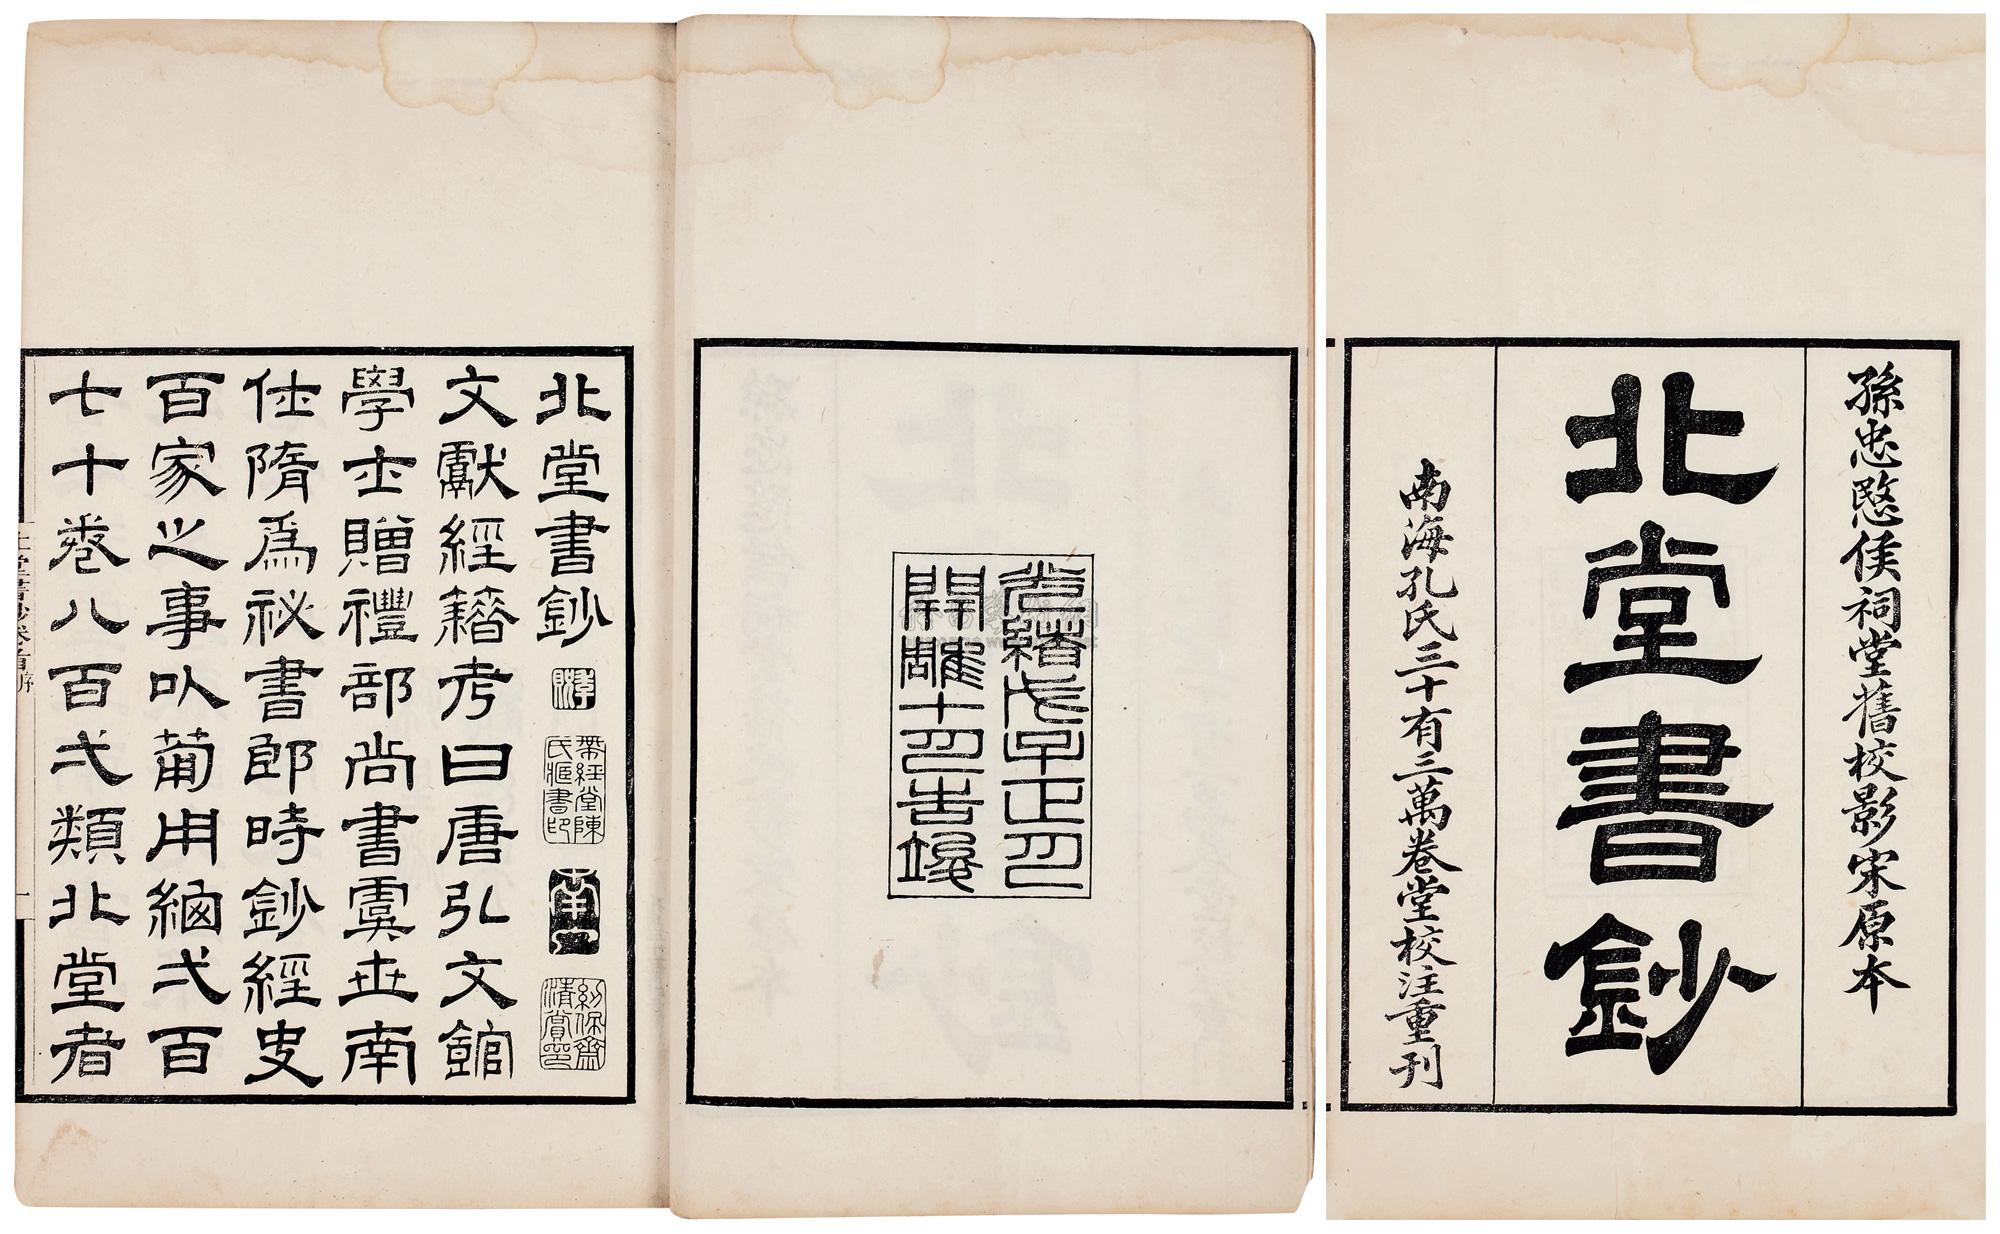 孫忠愍侯祠堂舊校影宋原本
北堂書鈔
南海孔氏三十有三萬卷堂校注重刊
光緒戊子正月
開雕十四吉竣
北堂書鈔
帶經堂陳
氏藏書印
文獻經籍考曰唐弘文館
學士贈禮部尚書虞世南
仕隋爲祕書郎時鈔經史
百家之事以葡用緬弌百
七十卷八百弌類北堂者